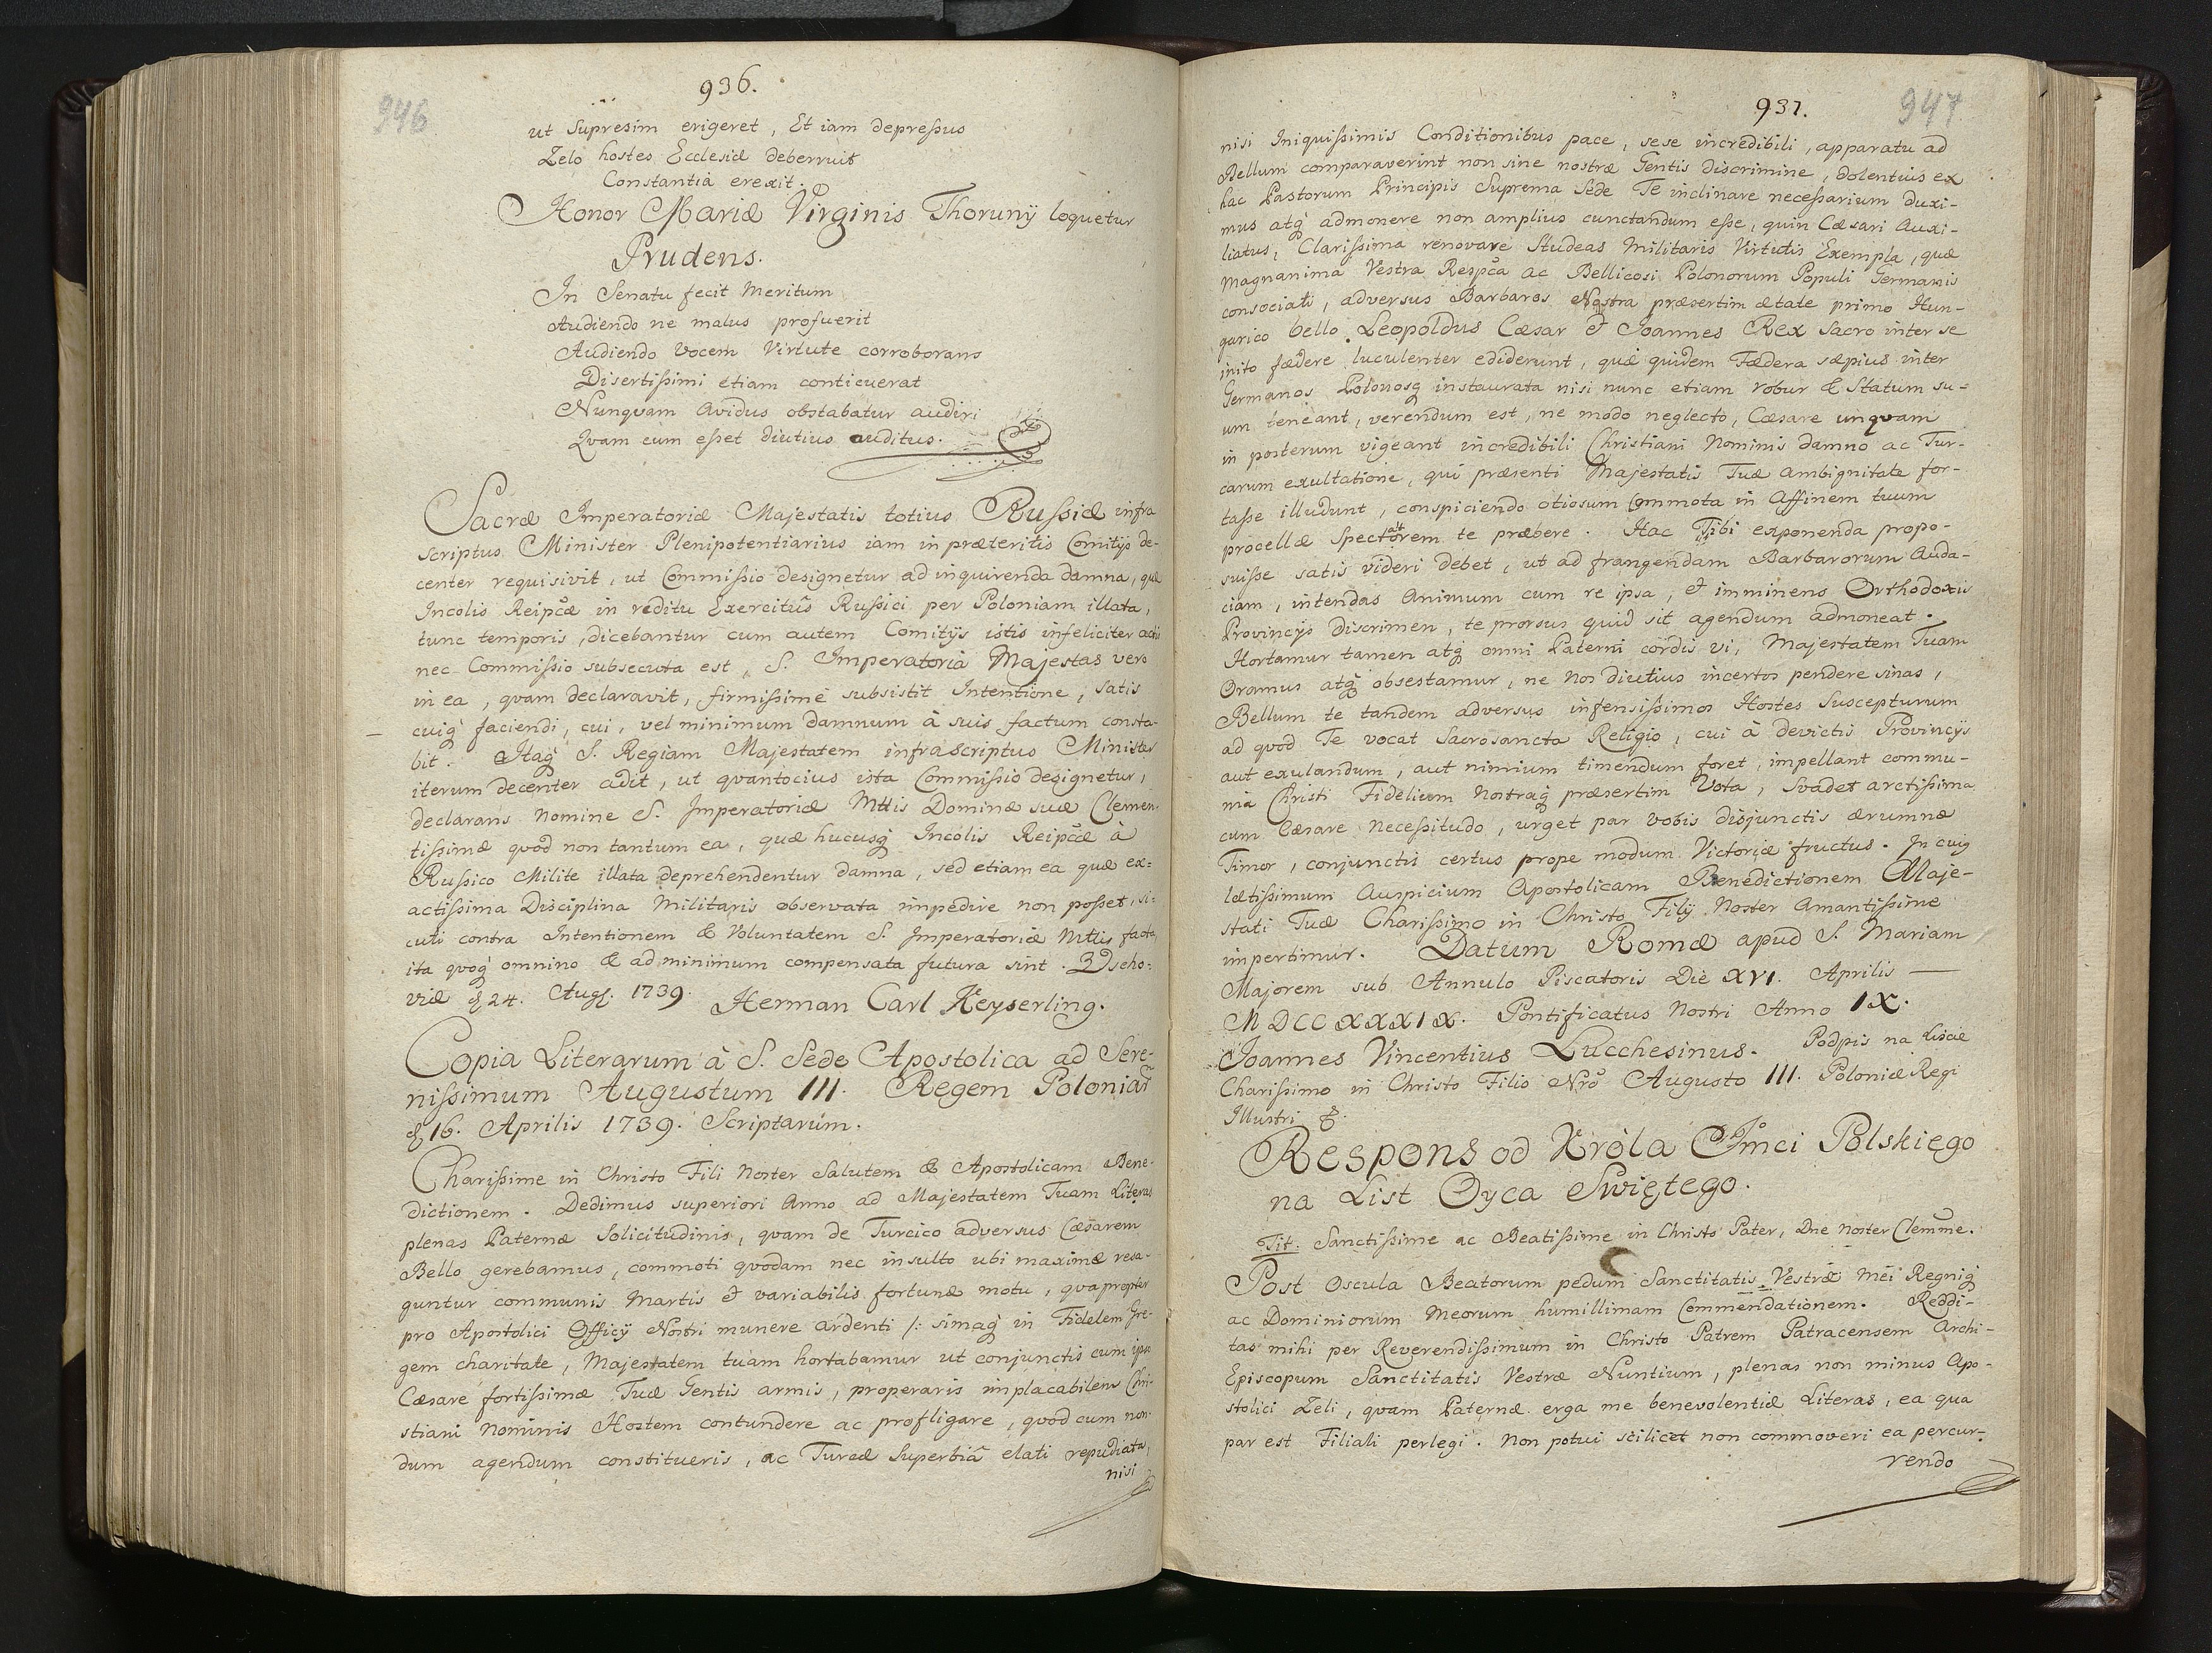 936.
946
ut Supresim erigeret, Et iam depreſsus
Zelo hostes Ecclesiæ deberruit
Constantiâ erexit.
Honor Mariæ Virginis Thorunÿ loquetur
Prudens.
In Senatu fecit Meritum
Audiendo ne malus profuerit
Audiendo Vocem Virtute corroborans
Disertiſsimi etiam conticuerat
Nunqvam Avidus obstabatur audiri
Qvam cum eſset diutius auditus.
Sacræ Imperatoriæ Majestatis totius Ruſsiæ infra
scriptus Minister Plenipotentiarius iam in præteritis Comitÿs de-
center requisivit, ut Commiſsio designetur ad inquirenda damna, quæ
Incolis Reipcæ in reditu Exercitûs Ruſsici per Poloniam illata,
tunc temporis, dicebantur cum autem Comitÿs istis infeliciter actis
nec Commiſsio subsecuta est, S. Imperatoria Majestas vero
in ea, qvam declaravit, firmiſsimè subsistit Intentione, satis
cuiq faciendi, cui, vel minimum damnum à suis factum consta-
bit. Itaq S. Regiam Majestatem infrascriptus Minister
iterum decenter adit, ut qvantocius ista Commiſsio designetur,
declarans Nomine S. Imperatoriæ Mttis Dominæ suæ Clemen-
tiſsimæ qvod non tantum ea, quæ hucusq Incolis Reipcæ à
Ruſsico Milite illata deprehendentur damna, sed etiam ea quæ ex=
actiſsima Disciplina Militaris observata impedire non poſset, si-
cuti contra Intentionem & Voluntatem S. Imperatoriæ Mttis facta,
ita qvoq omnino & ad minimum compensata futura sint. Wscho-
viæ d 24. Augt. 1739. Herman Carl Keyserling.
Copia Literarum à S. Sede Apostolica ad Sere-
niſsimum Augustum III. Regem Poloniar
d 16. Aprilis 1739. Scriptarum.
Chariſsime in Christo Fili Noster Salutem & Apostolicam Bene-
dictionem. Dedimus superiori Anno ad Majestatem Tuam Literas
plenas Paternæ Solicitudinis, qvam de Turcico adversus Cæsarem
Bello gerebamus, commoti qvodam nec insulto ubi maximæ resa-
guntur communis Martis & variabilis fortunæ motu, qvapropter
pro Apostolici Officÿ Nostri munere ardenti /: simaq in Fidelem Gre-
gem charitate, Majestatem tuam hortabamur ut conjunctis cum ipso
Cæsare fortiſsimæ Tuæ Gentis armis, properaris implacabilem Chri-
stiani Nominis Hostem contundere ac profligare, qvod cum non-
dum agendum constitueris, ac Turcæ Superbiâ elati repudiata,
nisi
937.
947
nisi Iniquiſsimis Conditionibus pace, sese incredibili, apparatu ad
Bellum comparaverint non sine nostræ Gentis discrimine, dolentius ex
hac Pastorum Principis Suprema Sede Te inclinare neceſsarium duxi-
mus atq admonere non amplius cunctandum eſse, quin Cæsari Auxi-
liatus, Clariſsima renovare Studeas Militaris Virtutis Exempla, quæ
magnanima Vestra Respca ac Bellicosi Polonorum Populi Germanis
consociati, adversus Barbaros Nostra præsertim ætate primo Hun-
garico bello Leopoldus Cæsar & Joannes Rex Sacro inter se
inito fædere luculenter ediderunt, quæ quidem Fædera sæpius inter
Germanos Polonosq instaurata nisi nunc etiam robur & Statum su-
um teneant, verendum est, ne modo neglecto, Cæsare unqvam
in posterum vigeant incredibili Christiani Nominis damno ac Tur-
carum exultatione, qui præsenti Majestatis Tuæ ambignitate for-
taſse illudunt, conspiciendo otiosum Commota in Affinem tuum
procellæ Spectatorem te præbere. Hac Tibi exponenda propo-
suiſse satis videri debet, ut ad frangendam Barbarorum Auda-
ciam, intendas Animum cum re ipsa, & imminens Orthodoxis
Provincÿs Discrimen, te prorsus quid sit agendum admoneat.
Hortamur tamen atq omni Paterni cordis vi, Majestatem Tuam
Oramus atq obsestamur, ne Nos diutius incertos pendere sinas,
Bellum te tandem adversus infensiſsimos Hostes Suscepturum
ad qvod Te vocat Sacrosancta Religio, cui à devictis Provincÿs
aut exulandum, aut nimium timendum foret, impellant commu-
nia Christi Fidelium Nostraq præsertim Vota, Svadet arctiſsima
cum Cæsare Neceſsitudo, urget par vobis disjunctis ærumnæ
Timor, conjunctis certus prope modum Victoriæ fructus. In cuiq
lætiſsimum Auspicium Apostolicam Benedictionem Maje-
stati Tuæ Chariſsimo in Christo Filÿ Noster Amantiſsime
impertimur. Datum Romæ apud S. Mariam
Majorem sub Annulo Piscatoris Die XVI. Aprilis —
MDCCXXXIX. Pontificatus Nostri Anno IX.
Joannes Vincentius Lucchesinus. Podpis na Liscie
Chariſsimo in Christo Filio Nrô Augusto III. Poloniæ Regi
Illustri &.
Respons od Króla Jmci Polskiego
na List Oyca Swiętego.
Tit: Sanctiſsime ac Beatiſsime in Christo Pater, Dne Noster Clemme.
Post Oscula Beatorum pedum Sanctitatis Vestræ Mei Regniq
ac Dominiorum Meorum humillimam Commendationem. Reddi-
tas mihi per Reverendiſsimum in Christo Patrem Patracensem Archi-
Episcopum Sanctitatis Vestræ Nuntium, plenas non minus Apo-
stolici Zeli, qvam Paternæ erga me benevolentiæ Literas, ea qua
par est Filiali perlegi. Non potui scilicet non commoveri ea percur-
rendo